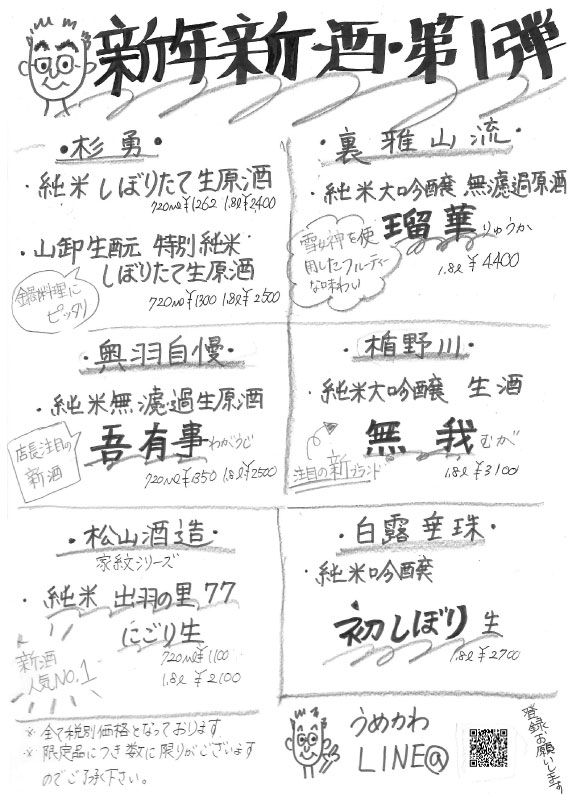 新年新酒・第1弾
・杉勇・
・純米 しぼりたて生原酒
720ml¥1262 1.8l¥2400
・山卸生酛 特別純米
しぼりたて生原酒
鍋料理に
ピッタリ
720ml¥1300 1.8l¥2500
・裏雅山流・
・純米大吟醸 無濾過原酒
瑠華 りゅうか
雪女神を使
用したフルーティー
な味わい
1.8l ¥4400
・奥羽自慢・
・純米無濾過生原酒
吾有事 わがうじ
店長注目の
新酒
720ml¥1350 1.8l¥2500
・楯野川・
・純米大吟醸 生酒
無我 むが
注目の新ブランド
1.8l ¥3100
・松山酒造・
家紋シリーズ
・純米 出羽の里 77
にごり生
新酒
人気NO.1
720ml¥1100
1.8l ¥2100
・白露垂珠・
・純米吟醸
初しぼり 生
1.8l ¥2700
※全て税別価格となっております
※限定品につき数に限りがございます
のでご了承下さい。
うめかわ
LINE@
登録お願いします